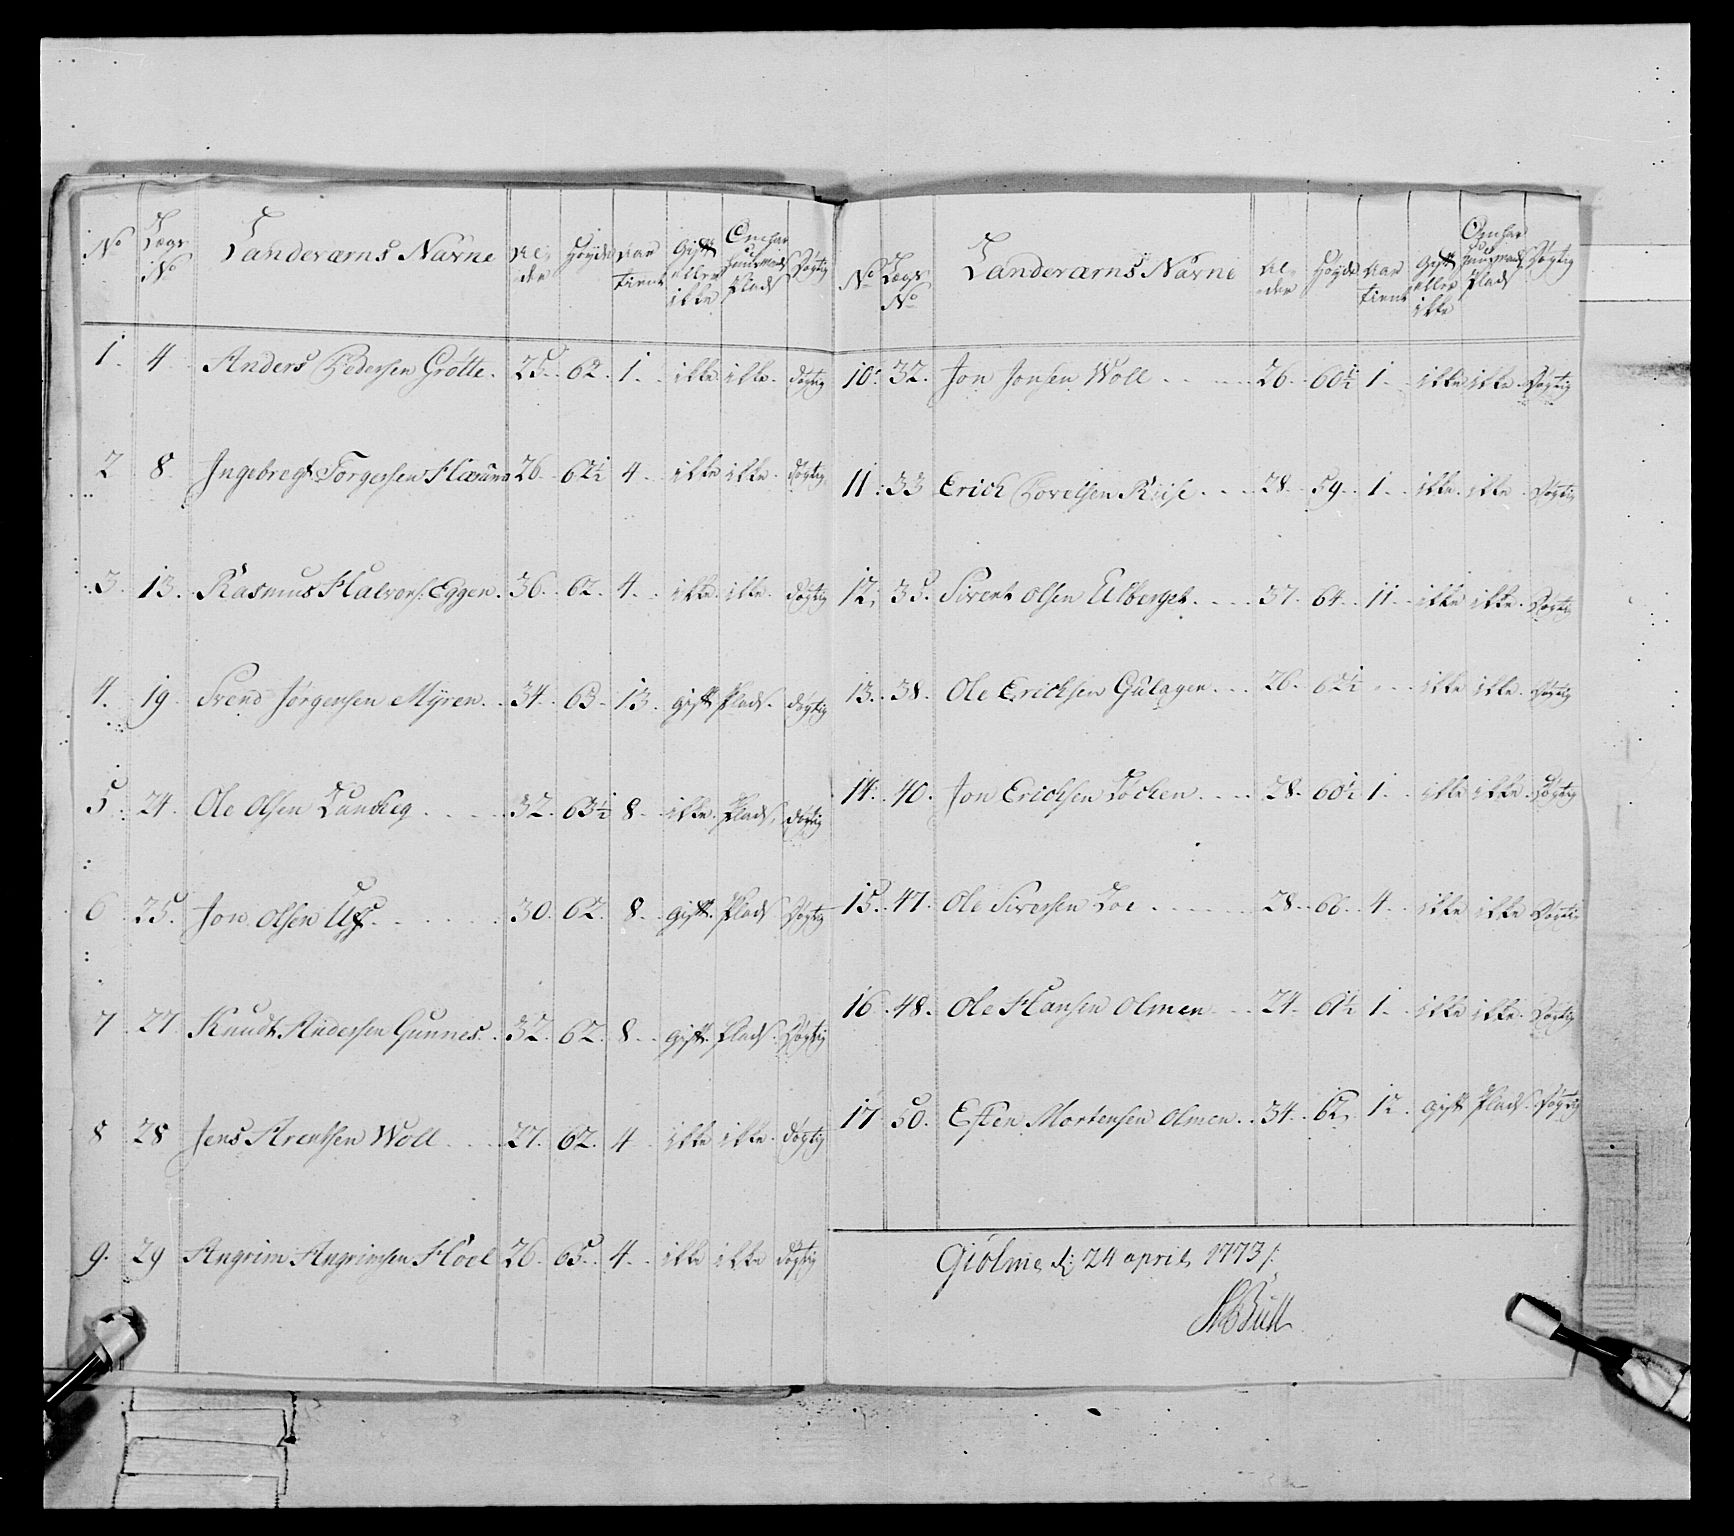 No Lægs No Landeværns Navne Al, der Høyde Aar tient Gift eller ikke Om har Huusmands Plads Døgtig
1. 4 Anders Pedersen Grøtte. 25. 62. 1. ikke. ikke. døgtig
2 8 Ingebregt Torgersen 26. 62½ 4. ikke ikke. døgtig
3. 13. Rasmus Halvors: Eggen. 36. 62. 4. ikke. ikke. døgtig
4. 19 Svend Jørgensen Myren. 34. 63. 13. gift Plads. døgtig
5. 24. Ole Olsen 32. 63½ 8. ikke. Plads. døgtig
6 25. Jon Olsen 30. 62. 8. gift. Plads Døgtig
7 27 Knudt Andersen Gunnes. 32. 62. 8. gift. Plads. Døgtig
8 28 Jens Arentsen Woll 27. 62. 4 ikke ikke. døgtig
9. 29 Angrim Angrimsen Hoel 26. 65. 4. ikke ikke døgtig
No Lægs No Landeværns Navne Al, der Høyde Aar tient Gift eller ikke Om har Huusmands Plads Døgtig
10. 32. Jon Jonsen Woll 26. 60½ 1. ikke ikke. Døgtig
11. 33 Erich Povelsen Riise 28. 59. 1. ikke. ikke. Døgtig
12. 35. Sivert Olsen Ulberget. 37. 64. 11. ikke ikke. Døgtig
13. 38. Ole Erichsen Gulagen 26. 62½ ikke ikke. Døgtig
14. 40. Jon Erichsen Løchen 28. 60½ 1. ikke ikke. Døgtig
15. 47. Ole Siversen Loe 28. 66. 4. ikke ikke Døgtig
16. 48. Ole Hansen Olmen 24. 61½ 1. ikke ikke. Døgtig
17. 50. Esten Mortensen Olmen. 34. 62. 12. gift Plads. Døgtig
Giølme d: 24 april 1773/.